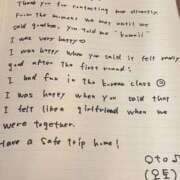 Thank you for contacting me directly.
From the moment we met until we
said goodbye, you told me "kawaii"
I was very happy
I was happy when you said it felt really
good after the first round!
I had fun in the korean class
I was happy when you said that
I felt like a girlfriend when we
were together.
Have a safe trip home!
Oto♪
(오토)